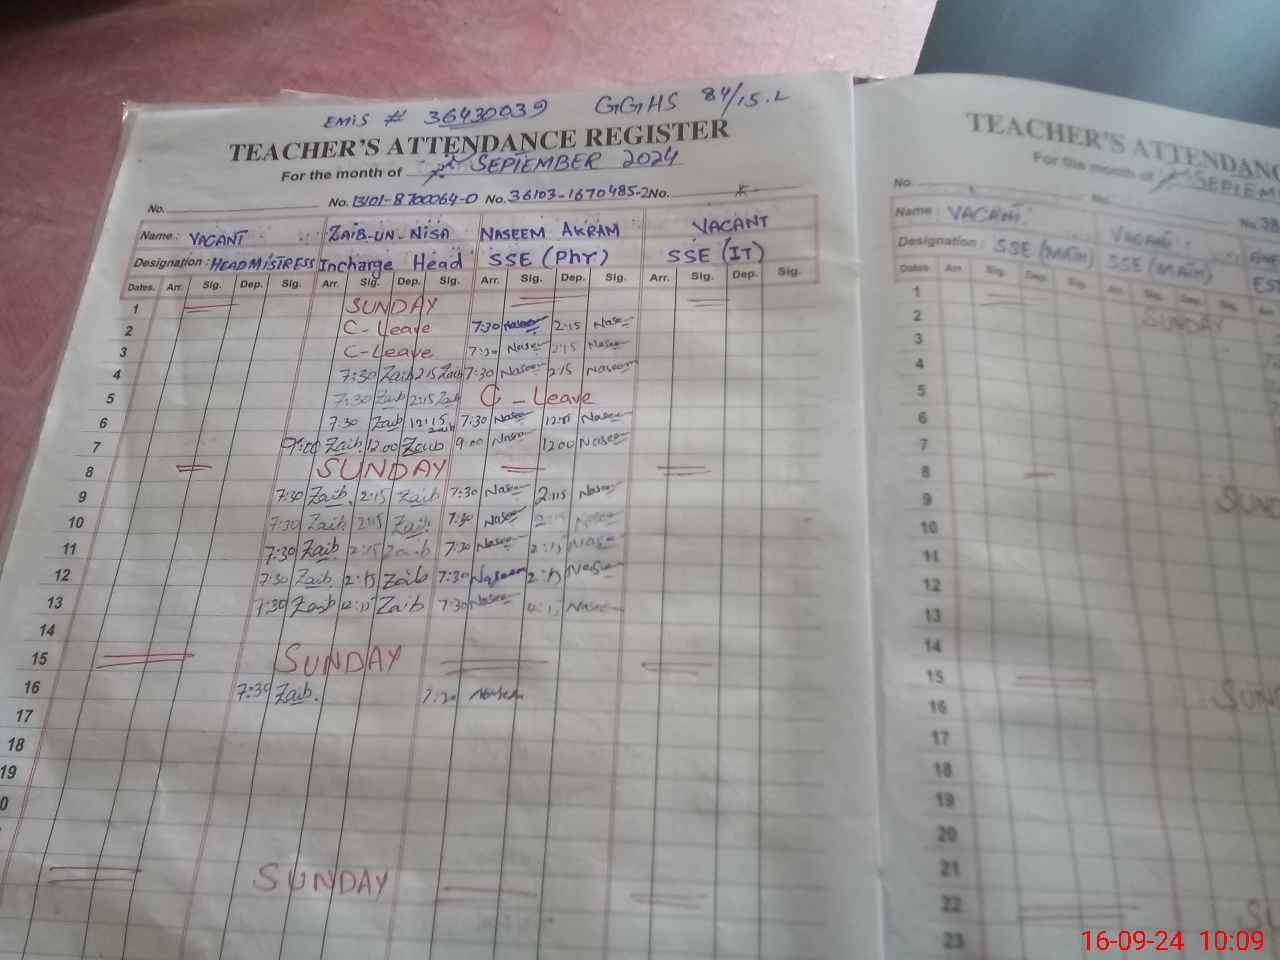 EMIS # 36430039 GGHS 84/15.L
TEACHER'S ATTENDANCE REGISTER
For the month of SEPTEMBER 2024
No. No. 13101-8700064-0 No. 36103-1670485-2 No.
Name : VACANT ZAIB-UN-NISA NASEEM AKRAM VACANT
Designation : HEADMISTRESS Incharge Head SSE (PHY) SSE (IT)
Dates. Arr. Sig. Dep. Sig. Arr. Sig. Dep. Sig. Arr. Sig. Dep. Sig. Arr. Sig. Dep. Sig.
1 SUNDAY
2 C-Leave 7:30 Naseem 2:15 Naseem
3 C-Leave 7:30 Naseem 2:15 Naseem
4 7:30 Zaib 2:15 Zaib 7:30 Naseem 2:15 Naseem
5 7:30 Zaib 2:15 Zaib C-Leave
6 7:30 Zaib 12:15 Zaib 7:30 Naseem 12:15 Naseem
7 9:00 Zaib. 12:00 Zaib 9:00 Naseem 1200 Naseem
8 SUNDAY
9 7:30 Zaib. 2:15 Zaib 7:30 Naseem 2:15 Naseem
10 7:30 Zaib 2:15 Zaib. 7:30 Naseem 2:15 Naseem
11 7:30 Zaib 2:15 Zaib 7:30 Naseem 2:15 Naseem
12 7:30 Zaib 2:15 Zaib 7:30 Naseem 2:15 Naseem
13 7:30 Zaib 12:15 Zaib 7:30 Naseem Naseem
14
15 SUNDAY
16 7:30 Zaib. 7:30 Naseem
17
18
19
SUNDAY
TEACHER'S ATTENDANC
For the month of SEPTEM
No. No. No. 38
Name : VACANT VACANT
Designation : SSE (MATH) SSE (MATH) EST
Dates. Arr. Sig. Dep. Sig. Arr. Sig. Dep. Sig. Arr.
1 SUNDAY
2
3
4
5
6
7
8 SUND
9
10
11
12
13
14
15 SUN
16
17
18
19
20
21
22 SU
23
16-09-24 10:09